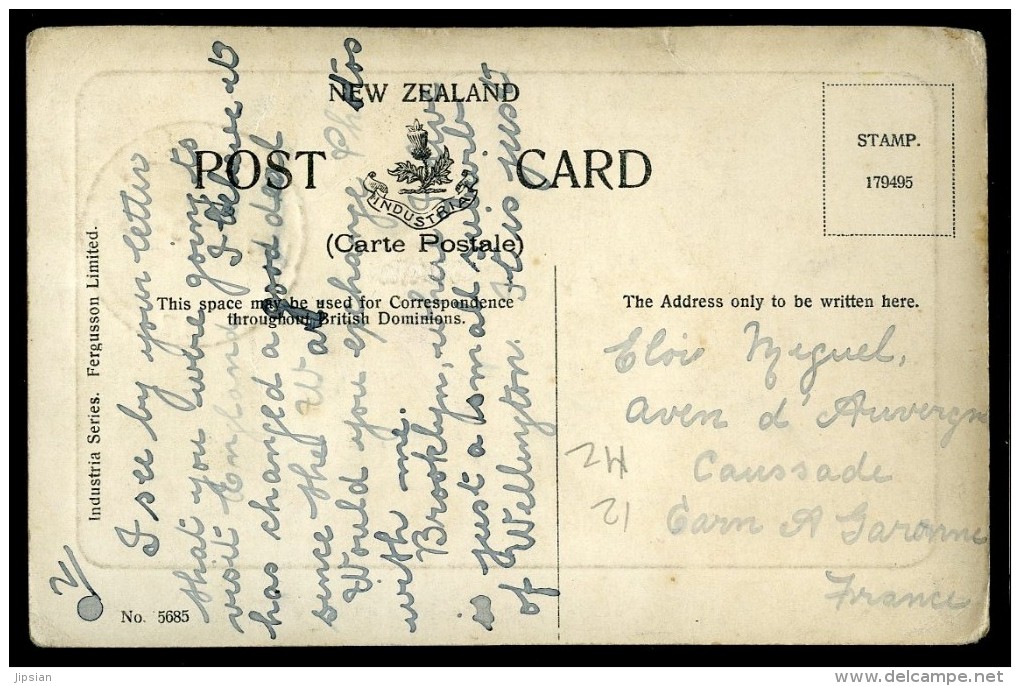 NEW ZEALAND
POST CARD
INDUSTRIA
(Carte Postale)
STAMP.
179495
This space may be used for Correspondence
throughout British Dominions.
The Address only to be written here.
Industria Series. Fergusson Limited.
No. 5685
2
I see by your letter
that you were going to
visit England I believe it
has changed a good deal
since the War
Would you exchange Photos
with me.
Brooklyn, where I
is just a small suburb
of Wellington. It is just
Elois Meguel,
aven d' Auvergn
Caussade
Tarn A Garonne
France
12
Jipsian
delcampe.net